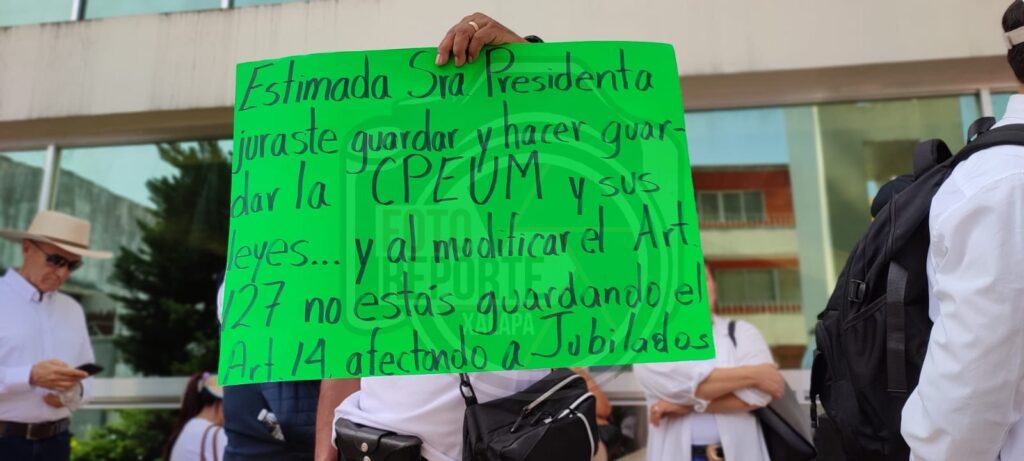 Estimada Sra Presidenta
juraste guardar y hacer guar-
dar la CPEUM y sus
leyes... y al modificar el Art.
127 no estás guardando el
Art. 14, afectando a Jubilados
FOTO
REPORTE
XALAPA